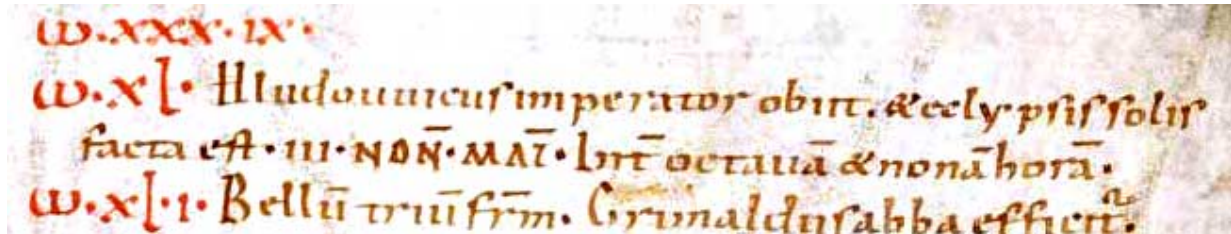 ω·xxx·ıx·
ω·xl· Hludouuicus imperator obiit. & eclypsis solis
facta est · III · NON̄ · MAĪ · Int̄ octauā & nonā horā.
ω·xl·ı· Bellū triū fr̄m. Grimaldus abba efficit᷑.